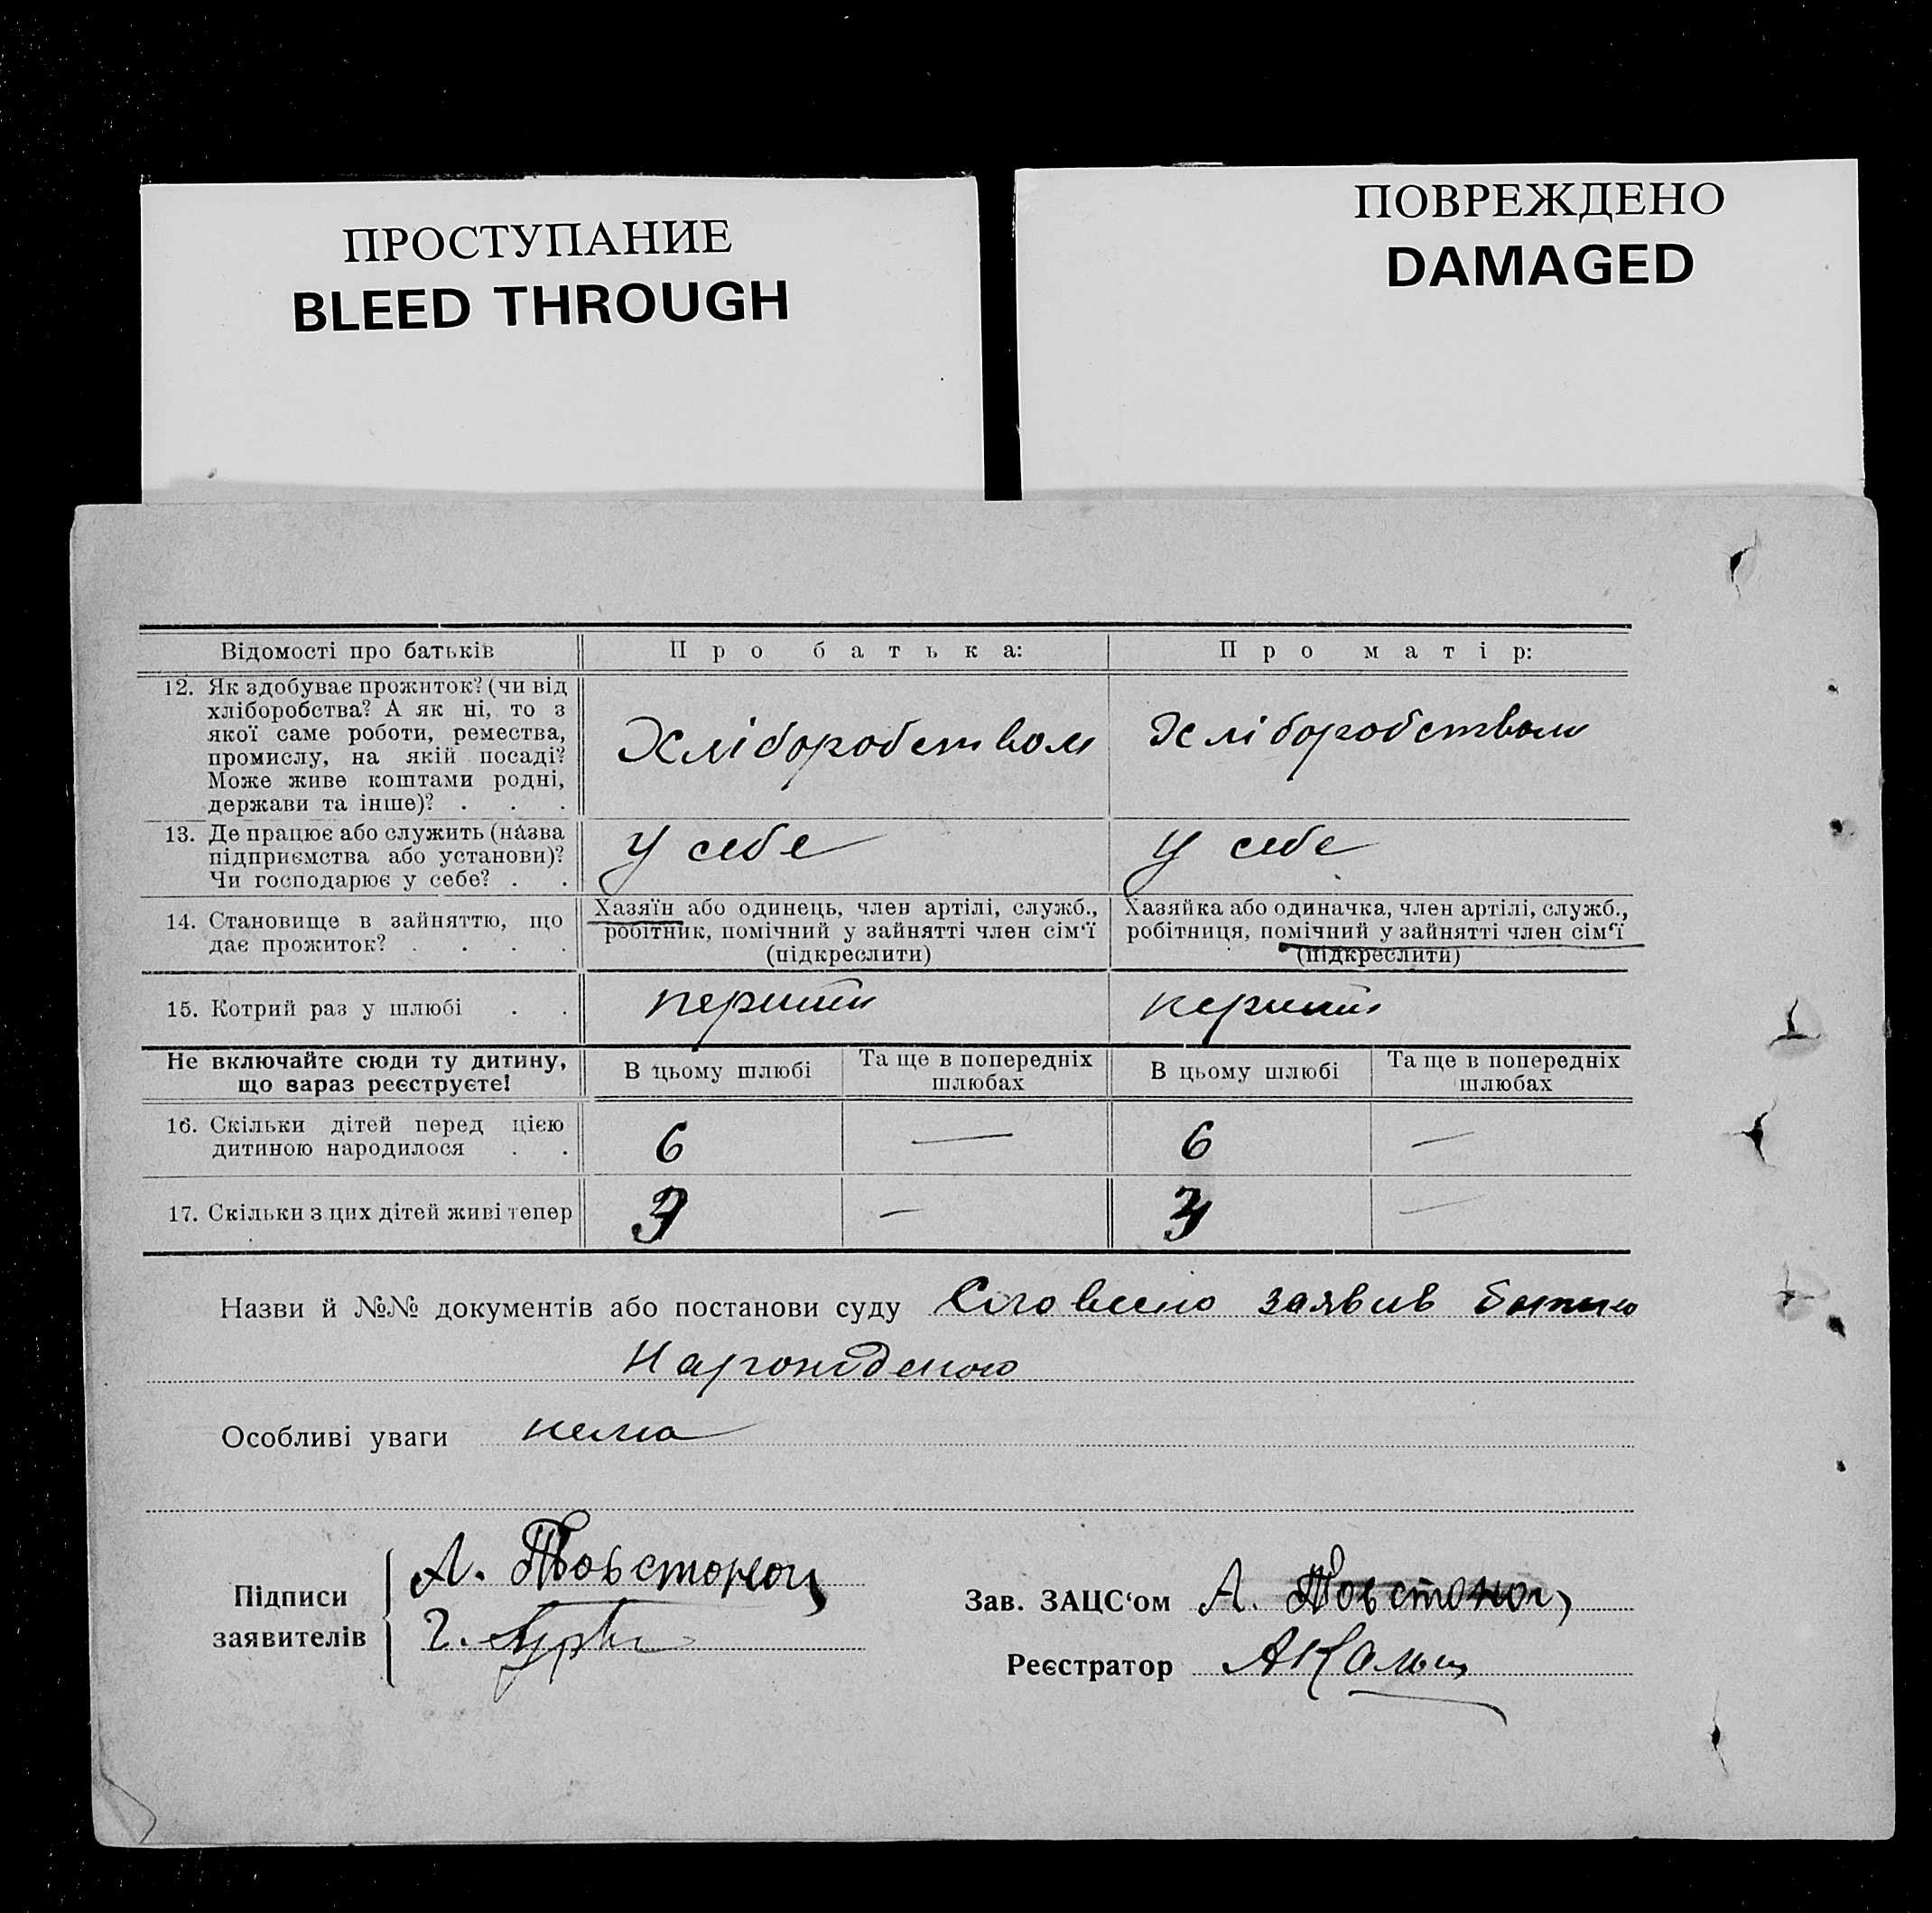 ПРОСТУПАНИЕ
BLEED THROUGH
ПОВРЕЖДЕНО
DAMAGED
Відомості про батьків
Про батька:
Про матір:
12. Як здобуває прожиток? (чи від
хліборобства? А як ні, то з
якої саме роботи, ремества,
промислу, на якій посаді?
Може живе коштами родні,
держави та інше)? . . .
Хліборобством
Хліборобством
13. Де працює або служить (назва
підприємства або установи)?
Чи господарює у себе? . .
У себе
У себе
14. Становище в зайняттю, що
дає прожиток? . . . .
Хазяїн або одинець, член артілі, служб.,
робітник, помічний у зайнятті член сім'ї
(підкреслити)
Хазяйка або одиначка, член артілі, служб.,
робітниця, помічний у зайнятті член сім'ї
(підкреслити)
15. Котрий раз у шлюбі . .
перший
перший
Не включайте сюди ту дитину,
що зараз реєструєте!
В цьому шлюбі
Та ще в попередніх
шлюбах
В цьому шлюбі
Та ще в попередніх
шлюбах
16. Скільки дітей перед цією
дитиною народилося . .
6
—
6
—
17. Скільки з цих дітей живі тепер
3
—
3
—
Назви й №№ документів або постанови суду Словесно заявив батько
Народженого
Особливі уваги нема
Підписи
заявителів
А. Товстоног
Зав. ЗАЦС'ом А. Товстоног
Реєстратор